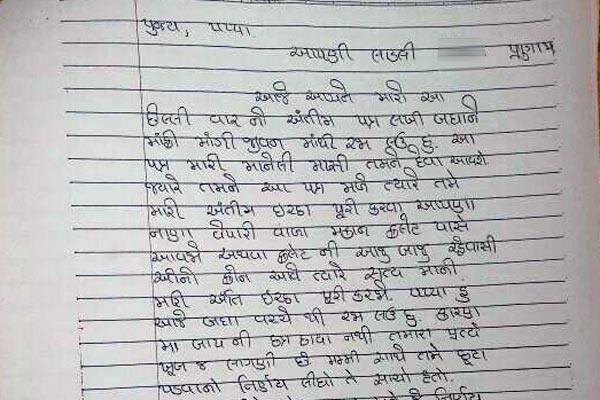 પુજ્ય, પપ્પા.
આપણી લાડલી પ્રણામ
આજે આપને મારો આ
છેલ્લી વાર નો અંતીમ પત્ર લખી બધાને
માફી માંગી જીવન માંથી રજા લઉ છુ. આ
પત્ર મારી માનેલી માસી તમને દેવા આવશે.
જ્યારે તમને આ પત્ર મળે ત્યારે તમે
મારી અંતીમ ઇચ્છા પૂરી કરવા આપણા
નાણા વેપારી વાળા મકાન ફ્લેટ પાસે
આવજો અથવા ફ્લેટ ની આજુ બાજુ રહેવાસી
ઓનો ફોન આવે ત્યારે સત્ય માની
મારી અંત ઇચ્છા પૂરી કરજો. પપ્પા હું
આજે બધા વચ્ચે થી રજા લઉ છુ. કારણ
મા બાપ ની છત્ર છાયા નથી તમારા પ્રત્યે
ખૂબ જ લાગણી છે મમ્મી સાથે તમે છૂટા
પડવાનો નિર્ણય લીધો તે સાચો હતો.
નિર્ણય